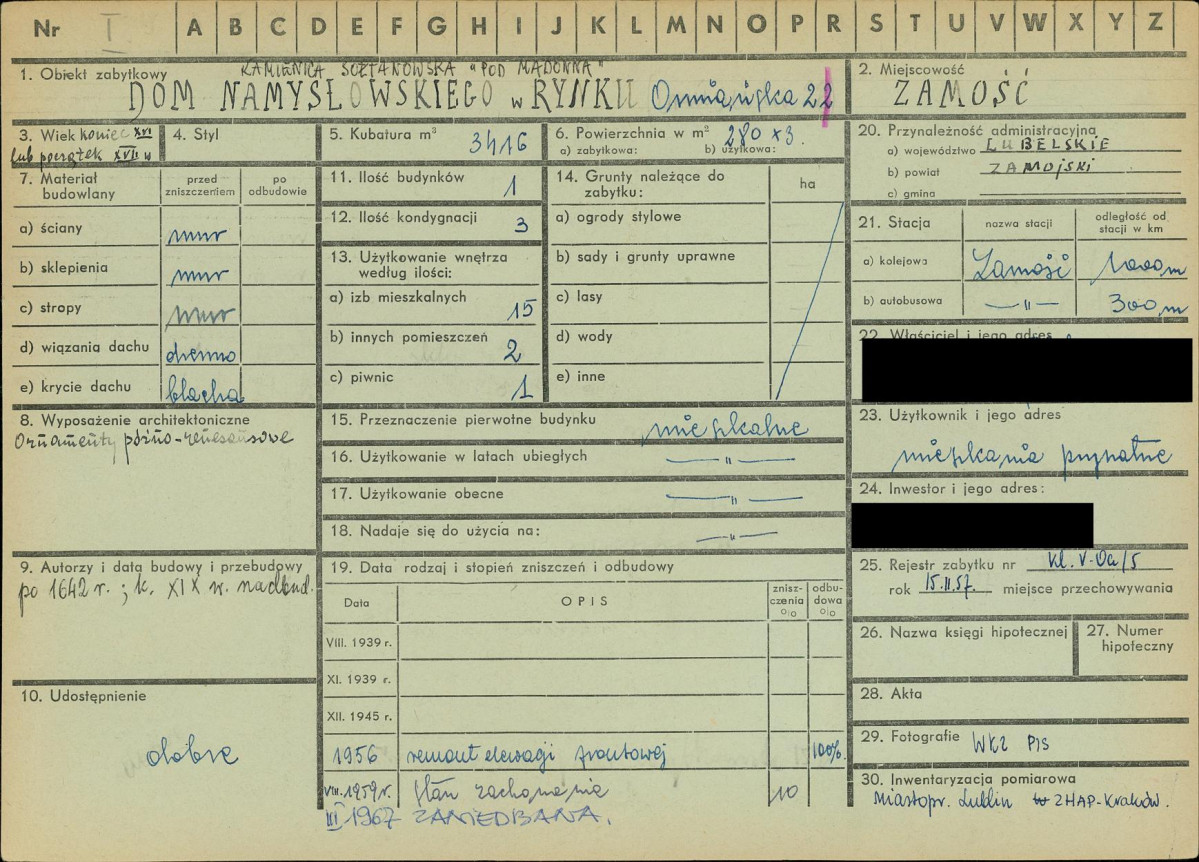 Nr I A B C D E F G H I J K L M N O P R S T U V W X Y Z
1. Obiekt zabytkowy
KAMIENICA SOŁTANOWSKA "POD MADONNĄ"
DOM NAMYSŁOWSKIEGO w RYNKU Ormiańska 22
2. Miejscowość
ZAMOŚĆ
3. Wiek koniec XVI
lub początek XVII w
4. Styl
5. Kubatura m³
3416
6. Powierzchnia w m² 280 x 3.
a) zabytkowa: b) użytkowa:
20. Przynależność administracyjna
a) województwo LUBELSKIE
b) powiat ZAMOJSKI
c) gmina
7. Materiał budowlany
przed zniszczeniem
po odbudowie
a) ściany mur
b) sklepienia mur
c) stropy mur
d) wiązania dachu drewno
e) krycie dachu blacha
11. Ilość budynków 1
12. Ilość kondygnacji 3
13. Użytkowanie wnętrza
według ilości:
a) izb mieszkalnych 15
b) innych pomieszczeń 2
c) piwnic 1
14. Grunty należące do
zabytku:
ha
a) ogrody stylowe
b) sady i grunty uprawne
c) lasy
d) wody
e) inne
21. Stacja
nazwa stacji
odległość od
stacji w km
a) kolejowa Zamość 1000 m
b) autobusowa —„— 300 m
22. Właściciel i jego adres
8. Wyposażenie architektoniczne
Ornamenty późno-renesansowe
15. Przeznaczenie pierwotne budynku mieszkalne
16. Użytkowanie w latach ubiegłych —„—
17. Użytkowanie obecne —„—
18. Nadaje się do użycia na: —„—
23. Użytkownik i jego adres
mieszkania prywatne
24. Inwestor i jego adres:
9. Autorzy i data budowy i przebudowy
po 1642 r.; k. XIX w. nadbud.
19. Data rodzaj i stopień zniszczeń i odbudowy
Data
OPIS
znisz-
czenia
%
odbu-
dowa
%
VIII. 1939 r.
XI. 1939 r.
XII. 1945 r.
1956 remont elewacji frontowej 100%.
VIII. 1959 r. stan zachowania 10
III 1967 ZANIEDBANA.
25. Rejestr zabytku nr Kl. V-Oa/5
rok 15.II.57. miejsce przechowywania
26. Nazwa księgi hipotecznej
27. Numer
hipoteczny
28. Akta
29. Fotografie WKZ PIS
30. Inwentaryzacja pomiarowa
Miastopr. Lublin w ZHAP-Kraków.
10. Udostępnienie
dobre